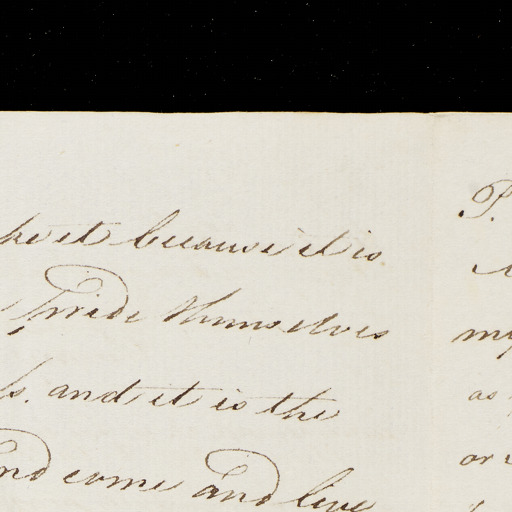 because it is
pride themselves
and it is the
And come and live
P.
my
as
or